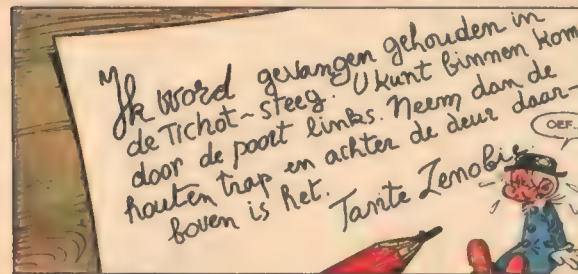 "Ik word gevangen gehouden in
de Tichot-steeg. U kunt binnen kom
door de poort links. Neem dan de
houten trap en achter de deur daar-
boven is het.
Tante Zenobie
OEF...